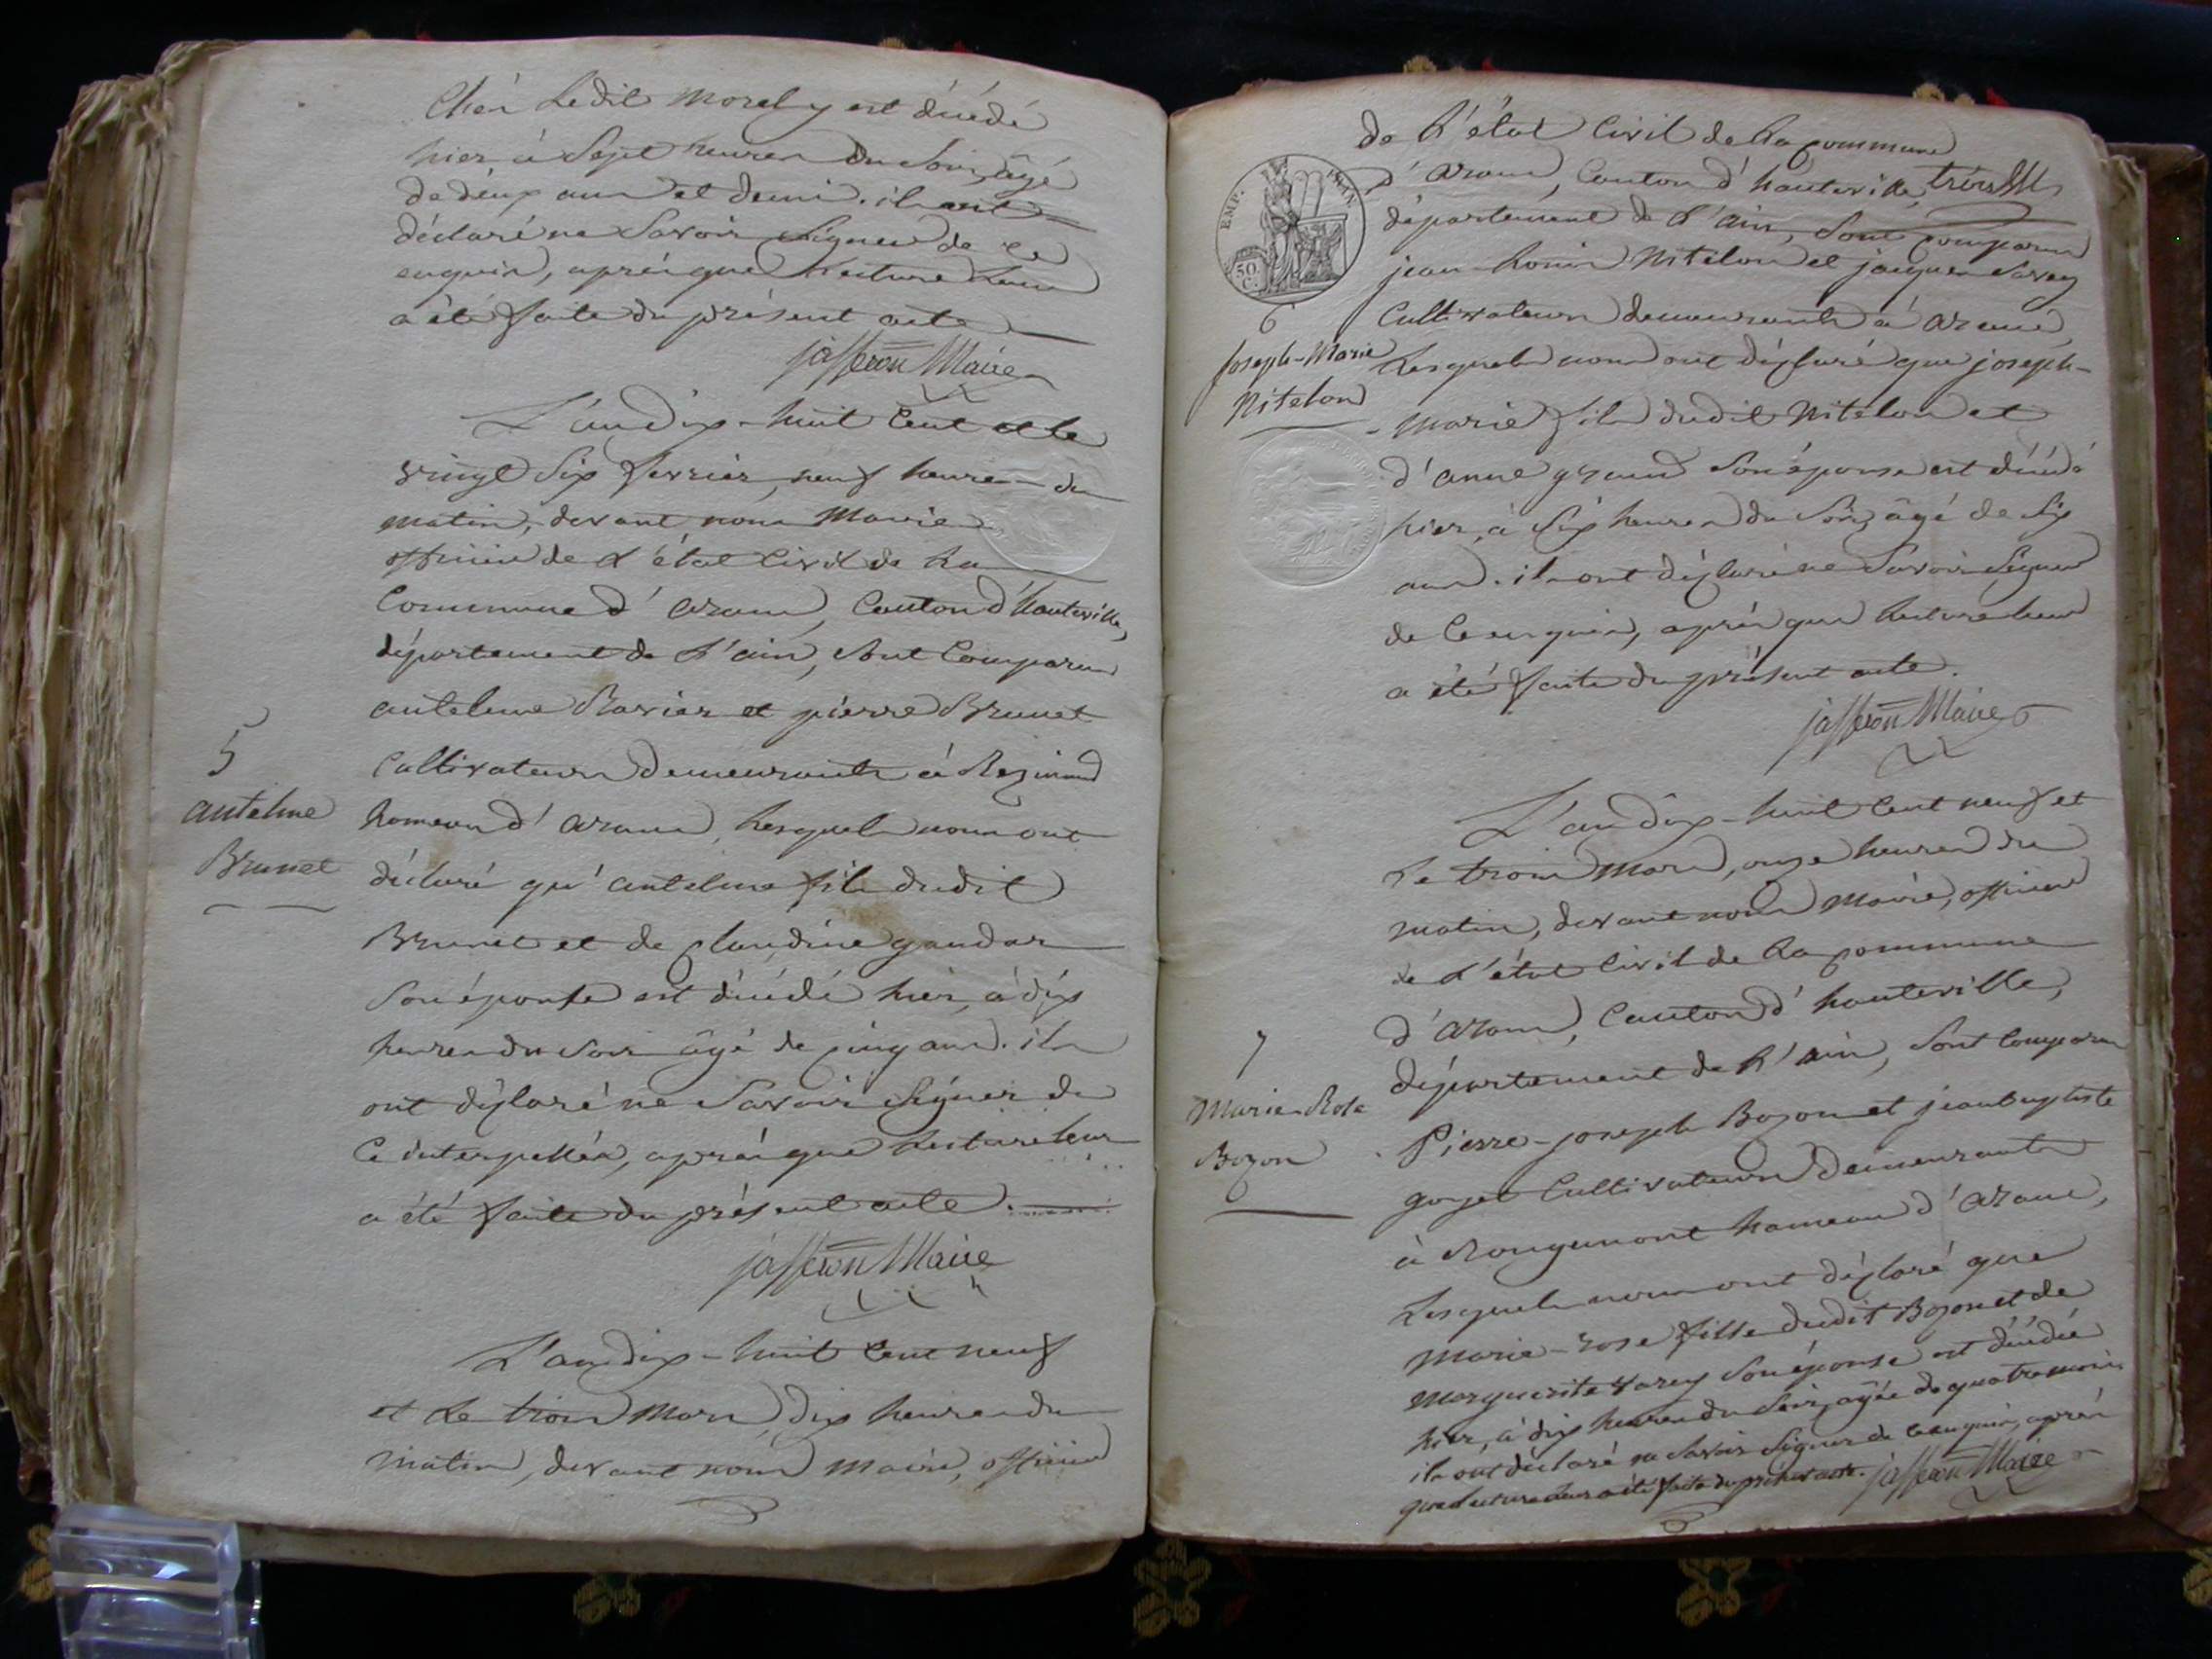 Chés Ledit Morel y est décédé
hier à Sept heures du Soir, âgé
de deux ans et demi. ils ont
déclaré ne Savoir Signer de ce
enquis, après que Lecture Leur
a été faite du présent acte
jasseron Maire
L'an dix-huit Cent et le
vingt Six fevrier, neuf heures du
matin, devant nous Maire
officier de L'état Civil de La
Commune d'aranc, Canton d'hauteville,
département de L'ain, Sont Comparus
antelme Ravier et pierre Brunet
Cultivateurs demeurants à Resinand
hameau d'aranc, Lesquels nous ont
déclaré qu'antelme fils dudit
Brunet et de Claudine gaudar
Son épouse est décédé hier, à dix
heures du Soir âgé de Cinq ans. ils
ont déclaré ne Savoir Signer de
Ce interpellés, après que Lecture leur
a été faite du présent acte.
jasseron Maire
5
antelme
Brunet
L'an dix-huit Cent neuf
et Le trois Mars, dix heures du
matin, devant nous maire, officier
de L'état Civil de La Commune
d'aranc, Canton d'hauteville,
département de L'ain, Sont Comparus
jean-Louis Nitelon et jacques Savey
Cultivateurs demeurants à aranc
Lesquels nous ont déclaré que joseph-
Marie fils dudit Nitelon et
d'anne grand Son épouse est décédé
hier, à Six heures du Soir, âgé de Six
ans. ils ont déclaré ne Savoir Signer
de Ce enquis, après que Lecture leur
a été faite du présent acte.
jasseron Maire
EMP. FRAN.
50
C.
6
Joseph-Marie
Nitelon
L'an dix-huit Cent neuf et
Le trois Mars, onze heures du
matin, devant nous Maire, officier
de L'état Civil de La Commune
d'aranc, Canton d'hauteville,
département de L'ain, Sont Comparus
Pierre-joseph Bozon et jean baptiste
goyet Cultivateurs demeurants
à Rougemont hameau d'aranc,
Lesquels nous ont déclaré que
Marie-rose fille dudit Bozon et de
Marguerite Savey Son épouse est décédée
hier, à dix heures du Soir, âgée de quatre mois
ils ont déclaré ne Savoir Signer de Ce enquis, après
que Lecture leur a été faite du présent acte. jasseron Maire
7
Marie Rose
Bozon